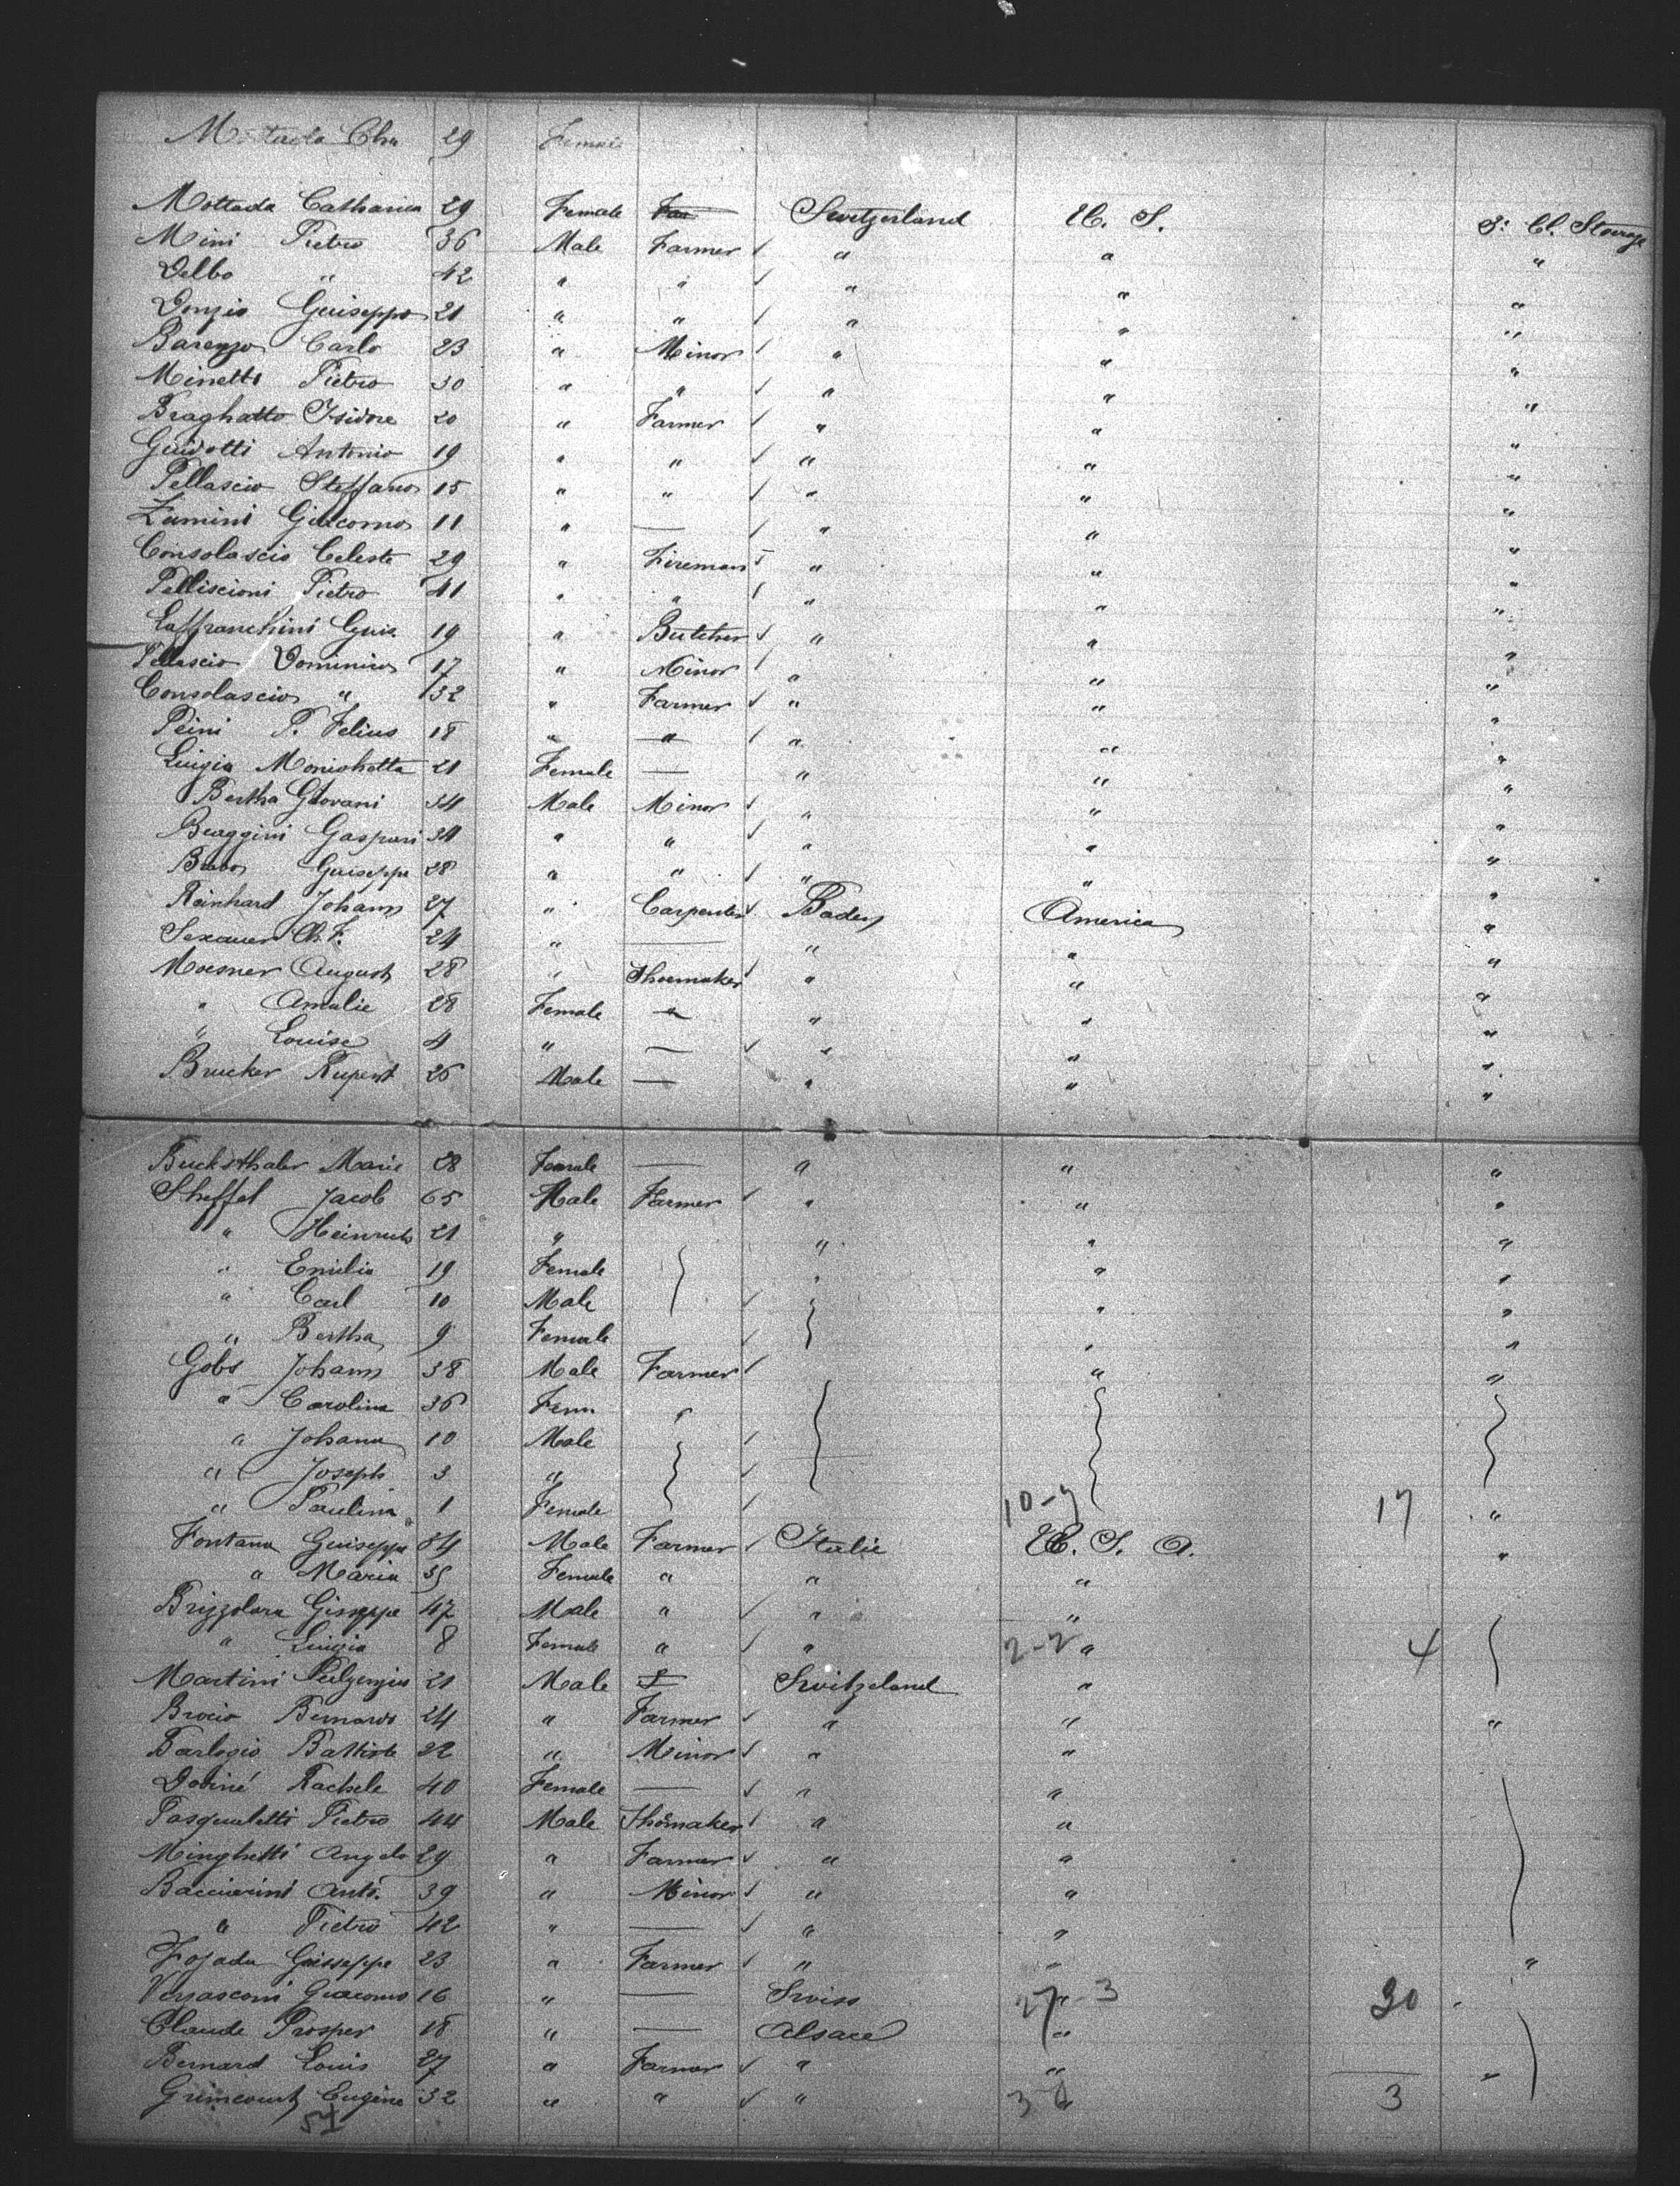 Female
Mottada Catharina 29 Female Switzerland U. S. S: Cl. Steerage
Mini Pietro 36 Male Farmer " " "
Delbo " 42 " " " " "
Donzio Guiseppo 21 " " " " "
Barenzo Carlo 23 " Minor " " "
Minetti Pietro 30 " " " " "
Braghatto Isidore 20 " Farmer " " "
Guidotti Antonio 19 " " " " "
Pellascio Steffano 15 " " " " "
Zumini Giacomo 11 " — " " "
Consolascio Celeste 29 " Fireman " " "
Pelliscioni Pietro 41 " " " " "
Laffranchini Guis. 19 " Butcher " " "
Pellascio Dominico 17 " Minor " " "
Consolascio " 32 " Farmer " " "
Peini P. Felius 18 " " " " "
Luigia Monighetta 21 Female — " " "
Bertha Giovani 34 Male Minor " " "
Buaggini Gaspari 34 " " " " "
Guiseppe 28 " " " " "
Reinhard Johann 27 " Carpenter Baden America "
Sexauer Ch. F. 24 " — " " "
Moesner August 28 " Shoemaker " " "
" Amalie 28 Female " " " "
" Louise 4 " — " " "
Brucker Rupert 26 Male — " " "
Buchsthaler Marie 28 Female — " " "
Sheffel Jacob 65 Male Farmer " " "
" Heinrich 21 " " " "
" Emilia 19 Female " " "
" Carl 10 Male " "
" Bertha 9 Female " "
Gobs Johann 38 Male Farmer " "
" Carolina 36 Fem "
" Johann 10 Male
" Joseph 3 "
" Paulina 1 Female 10-7 17 "
Fontana Guiseppe 34 Male Farmer Italie U. S. A. "
" Maria 35 Female " " "
Brizzolara Giseppe 47 Male " " "
" Luigia 8 Female " " 2-2 " 4
Martini 21 Male Switzeland "
Brocio Bernardo 24 " Farmer " " "
Barlogio Battiste 22 " Minor " "
Doviné Rachele 40 Female — " "
Pasqualetti Pietro 44 Male Shomaker " "
Minghetti Angelo 29 " Farmer " "
Bacciarini Anto. 39 " Minor " "
" Pietro 42 " — " "
Fojada Guisseppe 23 " Farmer " " "
Verzasconi Giacomo 16 " — Swiss 27-3 30 "
Claude Prosper 18 " — Alsace "
Bernard Louis 27 " Farmer " " "
Grimcourt Eugène 32 " " " 3 3
54